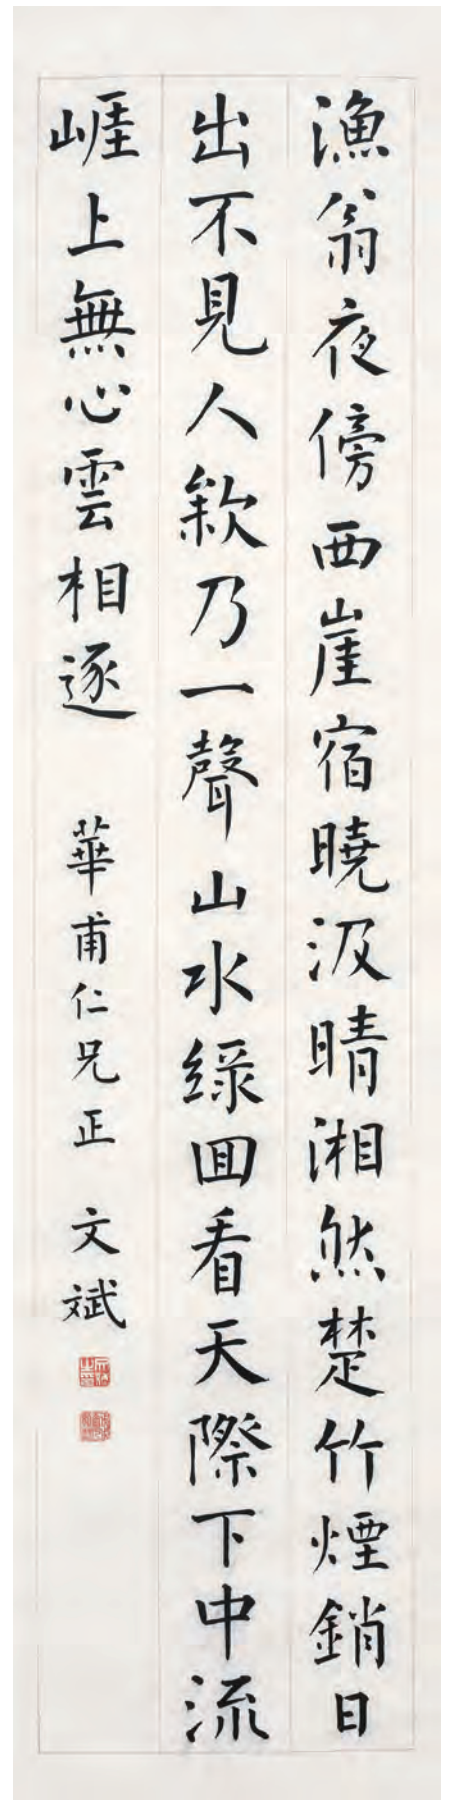 漁翁夜傍西崖宿曉汲晴湘然楚竹煙銷日
出不見人欸乃一聲山水綠囬看天際下中流
崕上無心雲相逐　華甫仁兄正　文斌